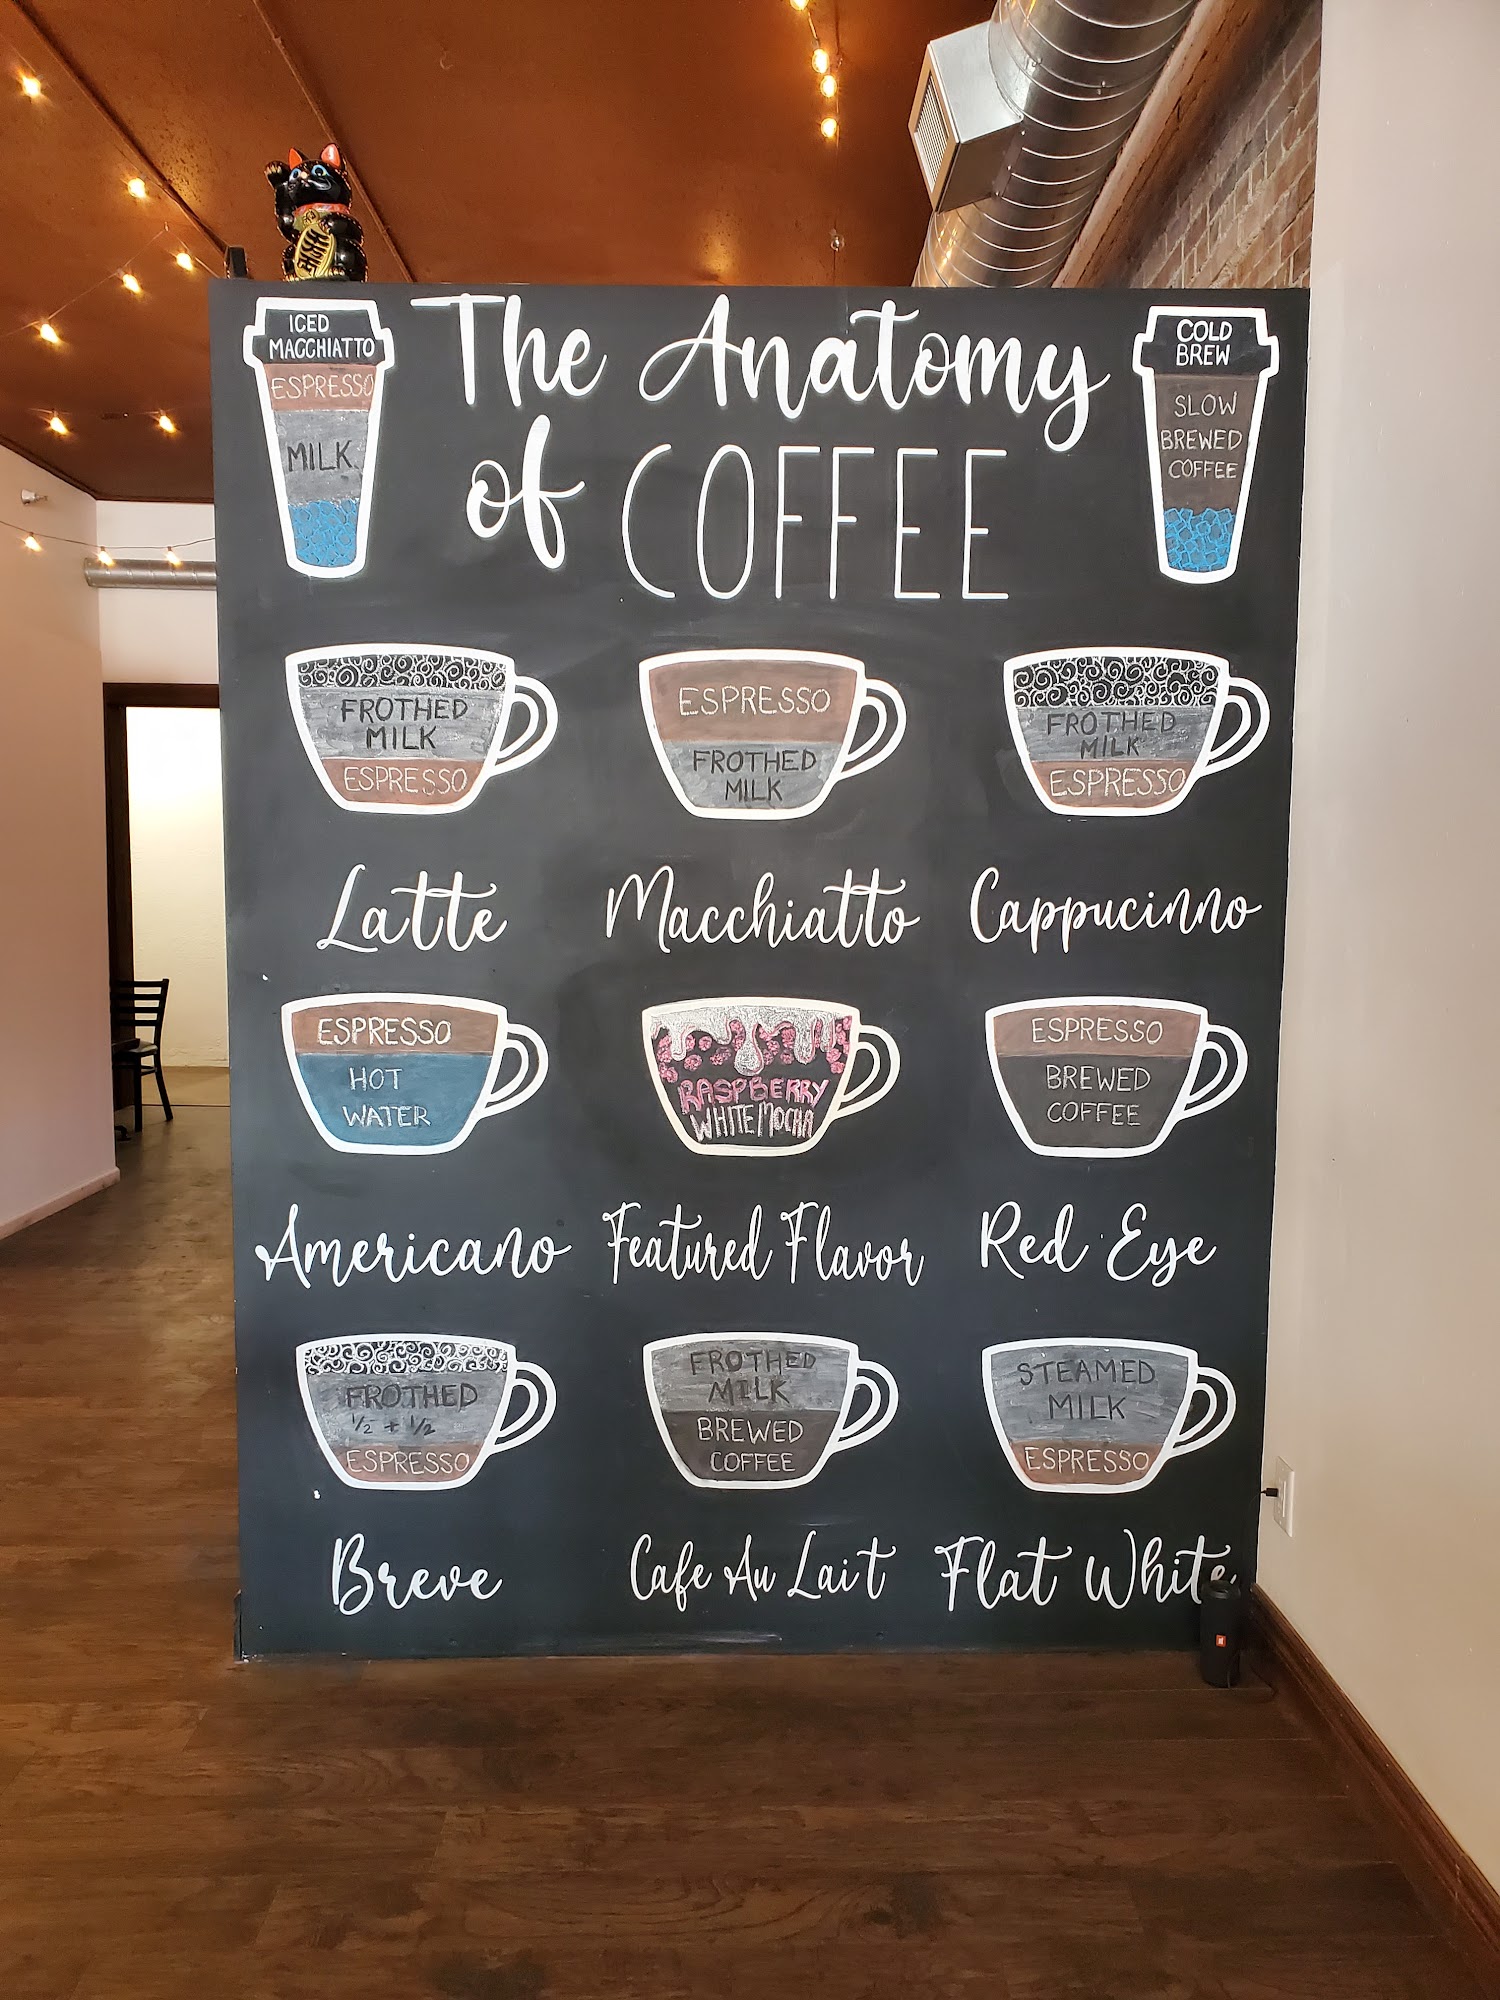 ICED
MACCHIATTO
ESPRESSO
MILK
The Anatomy
of COFFEE
COLD
BREW
SLOW
BREWED
COFFEE
FROTHED
MILK
ESPRESSO
Latte
ESPRESSO
FROTHED
MILK
Macchiatto
FROTHED
MILK
ESPRESSO
Cappucinno
ESPRESSO
HOT
WATER
Americano
RASPBERRY
WHITE MOCHA
Featured Flavor
ESPRESSO
BREWED
COFFEE
Red Eye
FROTHED
1/2 + 1/2
ESPRESSO
Breve
FROTHED
MILK
BREWED
COFFEE
Cafe Au Lait
STEAMED
MILK
ESPRESSO
Flat White